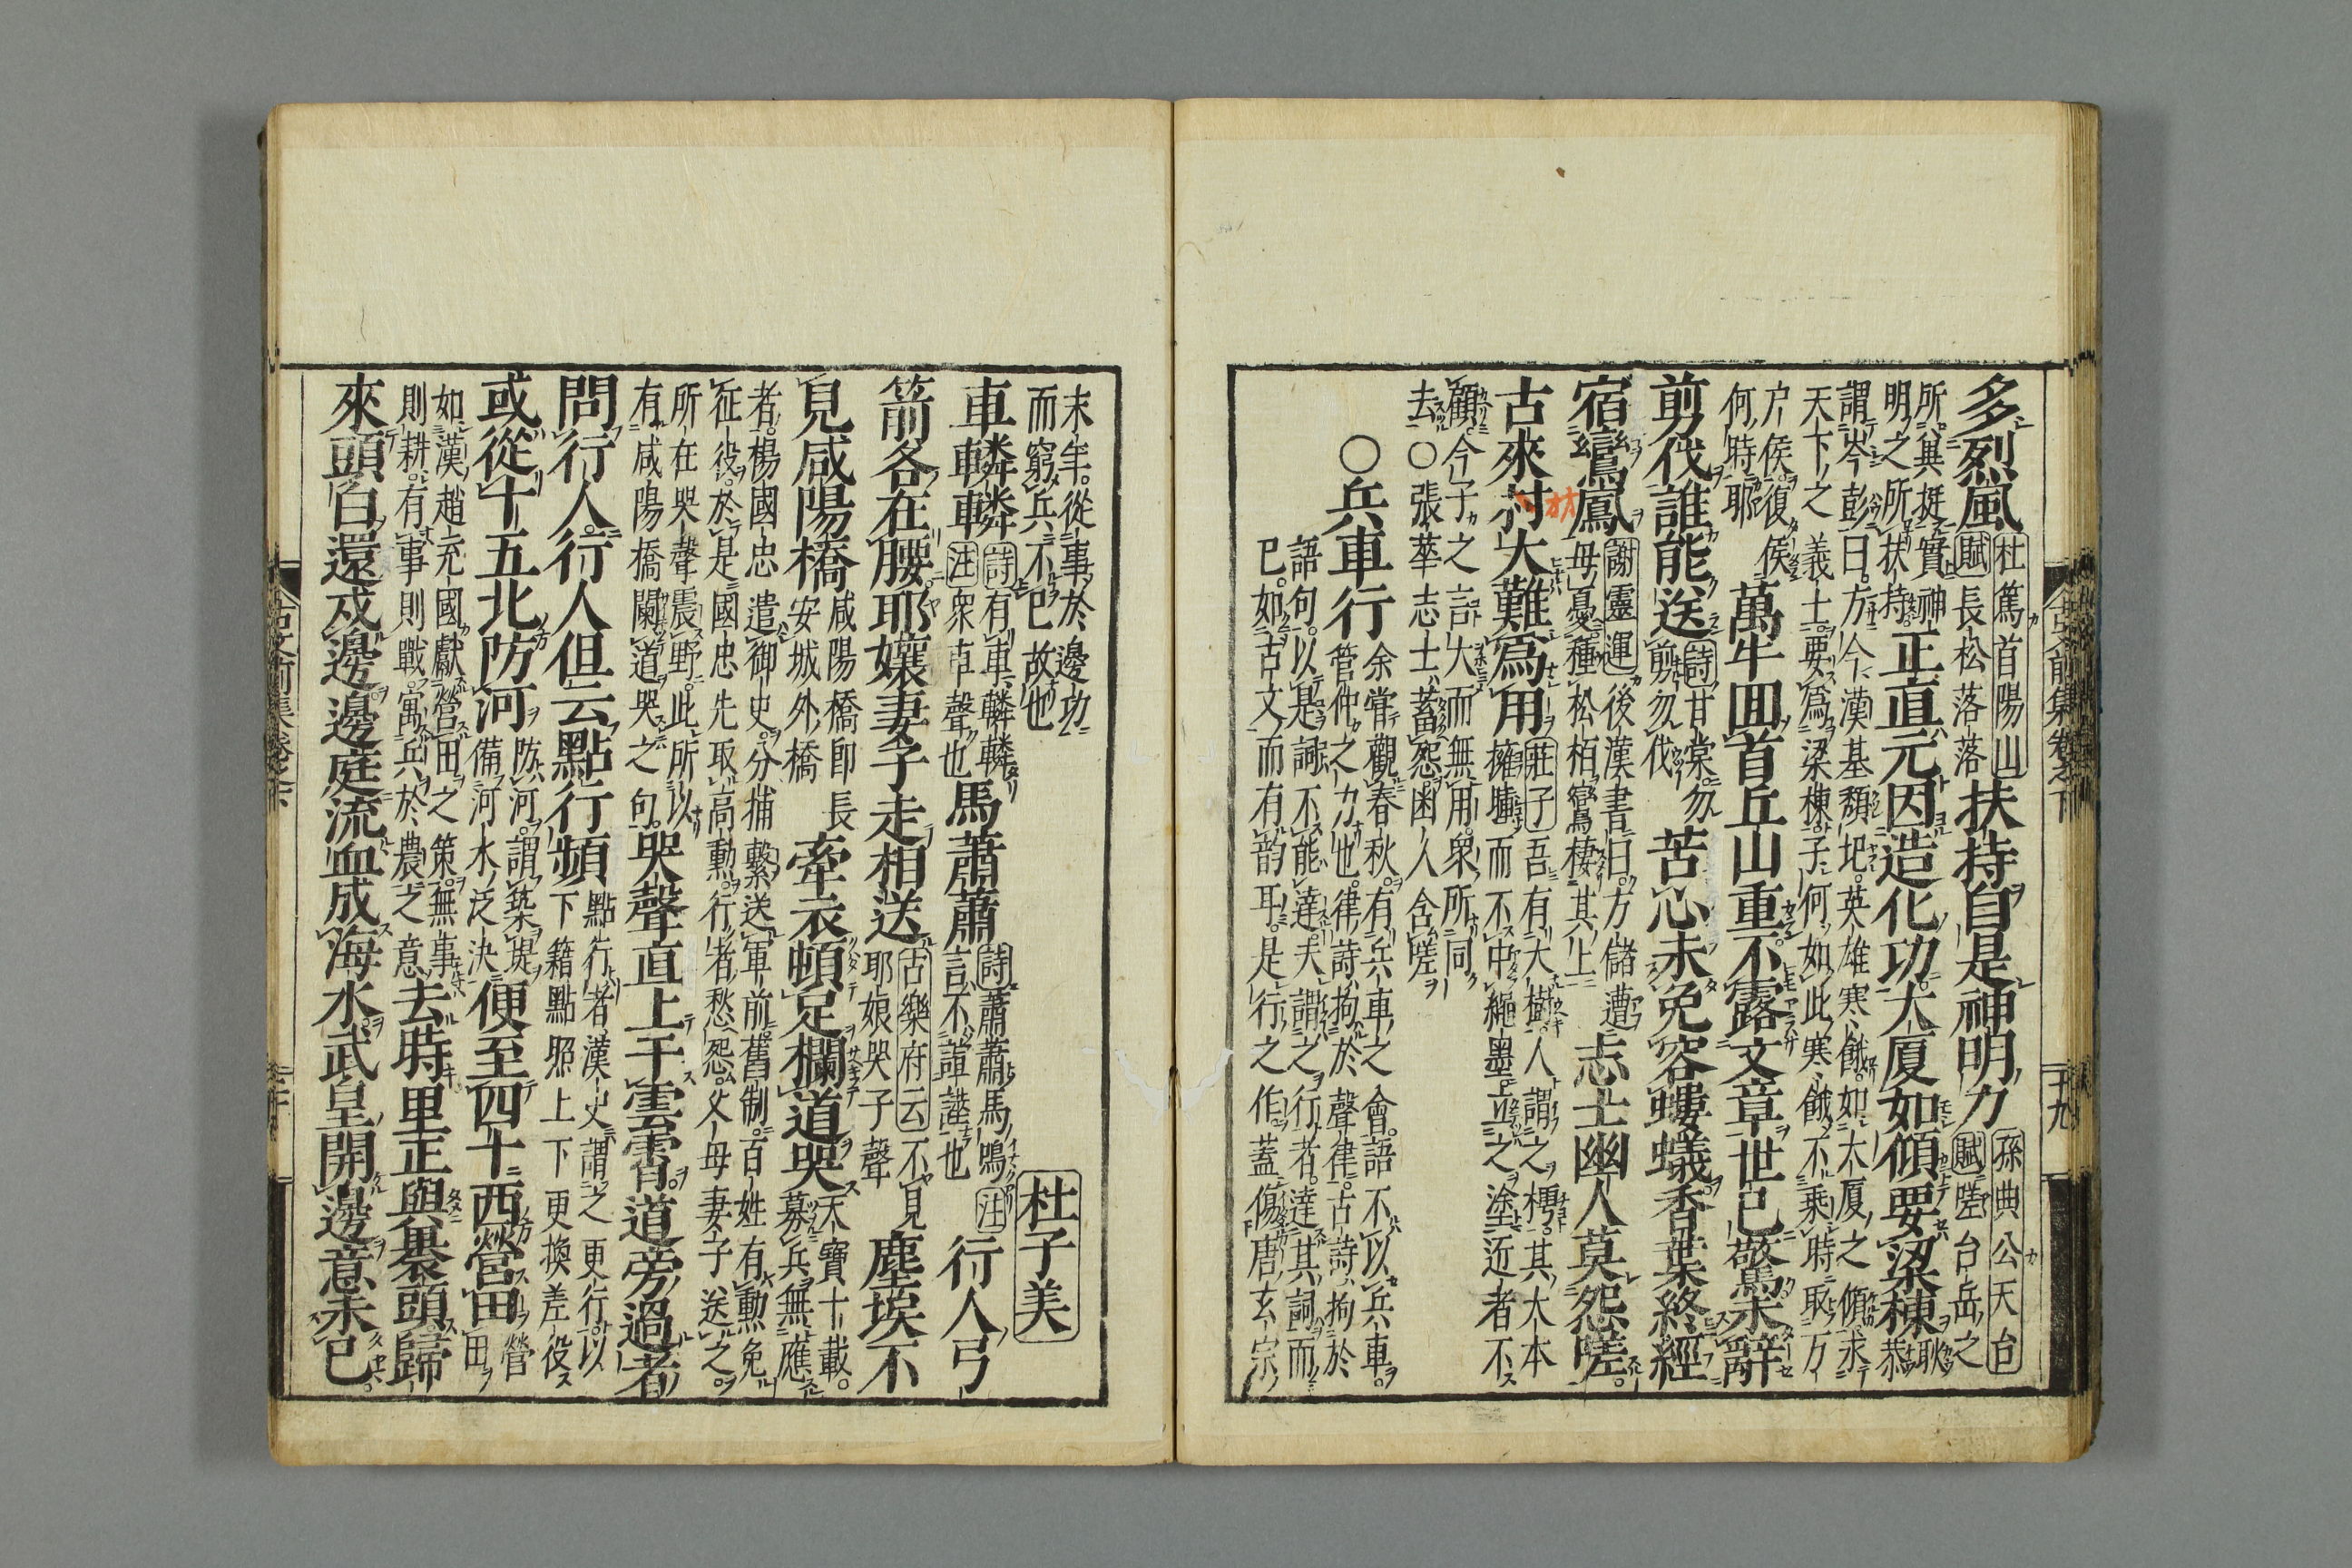 多烈風
杜篤首陽山
賦長松落落
扶持自是神明力
孫典公天台
賦嗟台岳之
所其挺實神
明之所扶持
正直元因造化功大厦如傾要梁棟
耿恭
謂岑彭曰方今漢基頽圮英雄寒餓如大厦之傾求
天下之義士要為梁棟子何如此寒餓不乗時取万
户侯復侯
何時耶
萬牛囬首丘山重不露文章世已驚未辭
剪伐誰能送
詩甘棠勿
剪勿伐
苦心未免容螻蟻香葉終經
宿鸞鳳
謝靈運後漢書曰方儲遭
母憂種松栢鸞棲其上
志士幽人莫怨嗟
古來材大難為用
莊子吾有大樹人謂之樗其大本
擁腫而不中繩墨立之塗近者不
材
顧今子之言大而無用衆所同
去〇張莘志士蓄怨困人含嗟
〇兵車行
余嘗觀春秋有兵車之會語不以兵車
管仲之力也律詩拘於聲律古詩拘於
語句以是詞不能達夫謂之行者達其詞而
已如古文而有韵耳是行之作蓋傷唐玄宗
古文前集卷之下
十九
末年從事於邊功
而窮兵不已故也
杜子美
車轔轔
詩有車轔轔
注衆車聲也
馬蕭蕭
詩蕭蕭馬鳴注
言不諠譁也
行人弓
箭各在腰耶孃妻子走相送
古樂府云不見
耶娘哭子聲
塵埃不
見咸陽橋
咸陽橋即長
安城外橋
牽衣頓足欄道哭
天寶十載
募兵無應
者楊國忠遣御史分捕繫送軍前舊制百姓有勲免
征役於是國忠先取高勲行者愁怨父母妻子送之
所在哭聲震野此所以
有咸陽橋闌道哭之句
哭聲直上干雲霄道旁過者
問行人行人但云點行頻
點行者漢史謂之更行以
下籍點照上下更換差役
或從十五北防河
防河謂築堤
備河水泛決
便至四十西營田
營
田
如漢趙充國獻營田之策無事
則耕有事則戰寓兵於農之意
去時里正與裹頭歸
來頭白還戍邊邊庭流血成海水武皇開邊意未已